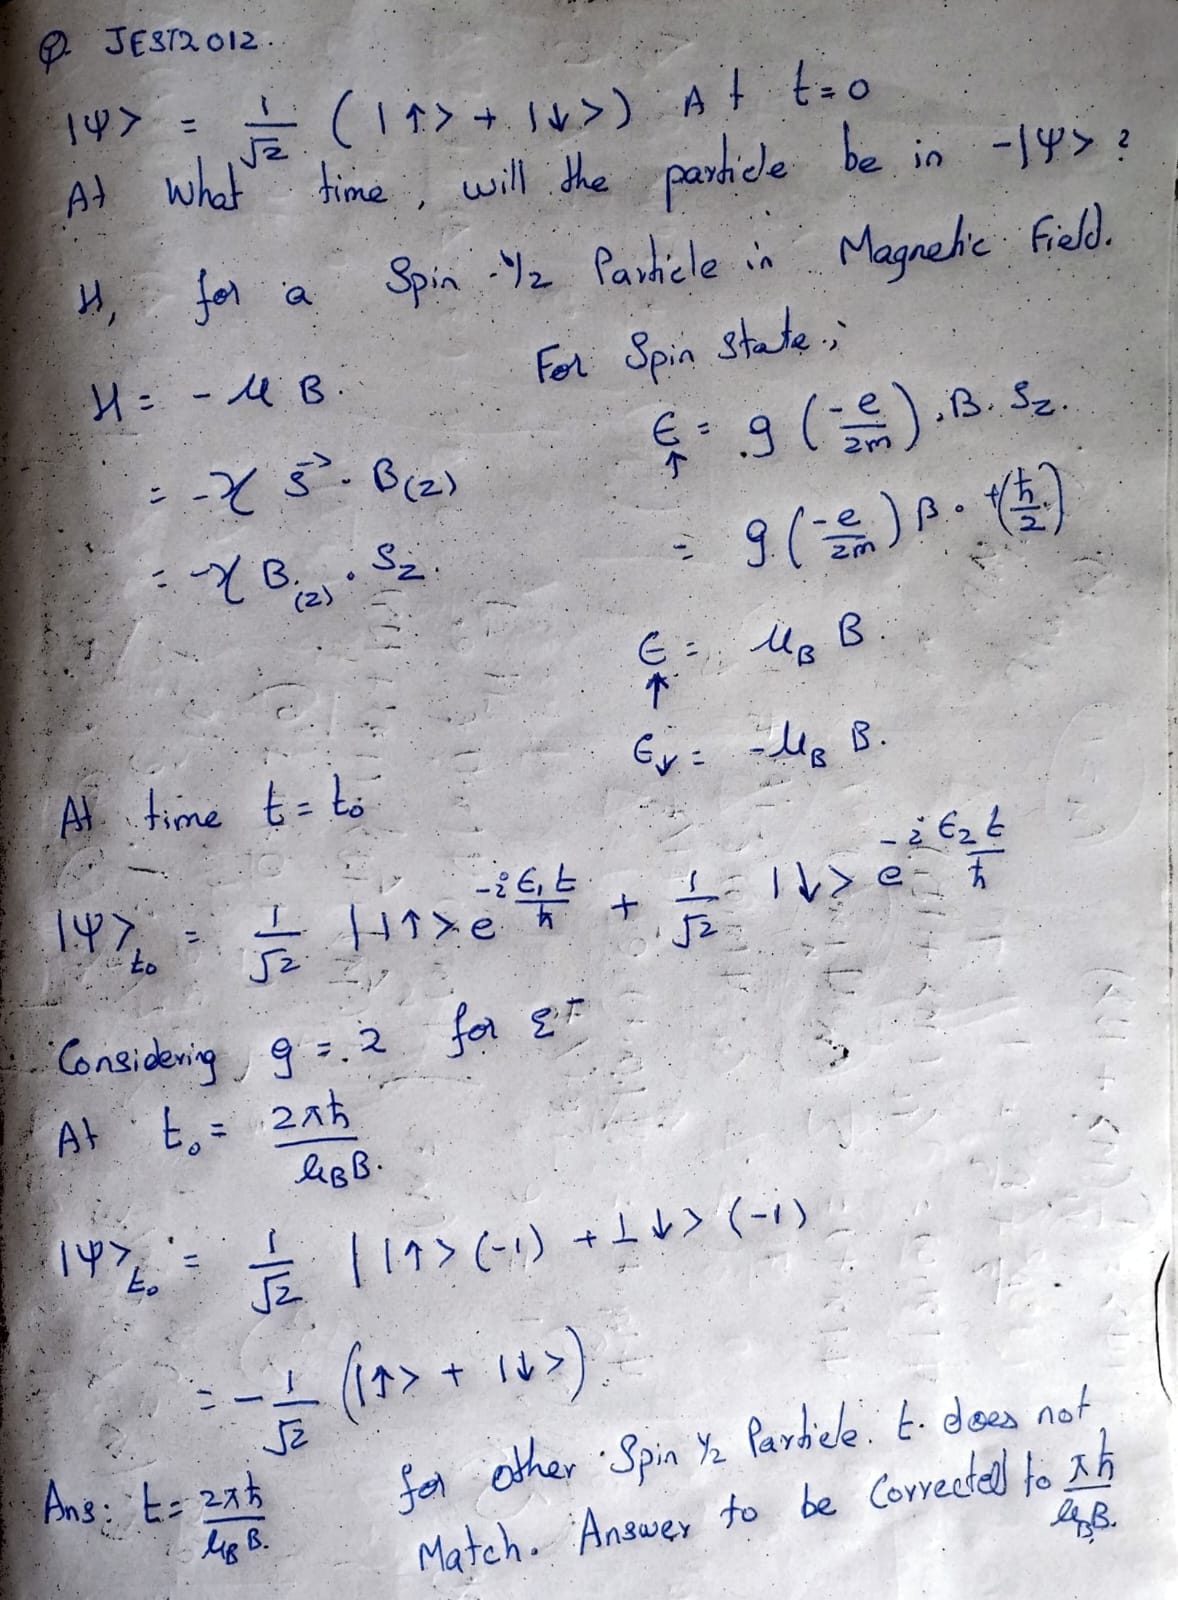 Q. JEST2012.
|ψ> = 1/√2 (|↑> + |↓>) At t=0
At What time, will the particle be in -|ψ> ?
H, for a Spin-1/2 Particle in Magnetic Field.
H = - μ B.
= -γ S⃗ . B(z)
= -γ B(z) . Sz.
For Spin State;
ϵ↑ = g (-e/2m) . B. Sz.
= g (-e/2m) B . +(ħ/2)
ϵ↑ = μB B.
ϵ↓ = -μB B.
At time t = t₀
|ψ>t₀ = 1/√2 |↑> e^(-iϵ₁t/ħ) + 1/√2 |↓> e^(-iϵ₂t/ħ)
Considering g = 2 for
At t₀ = 2πħ/μB B.
|ψ>t₀ = 1/√2 | |↑> (-1) + |↓> (-1)
= - 1/√2 (|↑> + |↓>)
Ans: t = 2πħ/μB B.
for other Spin 1/2 Particle. t. does not
Match. Answer to be Corrected to πħ/μB B.